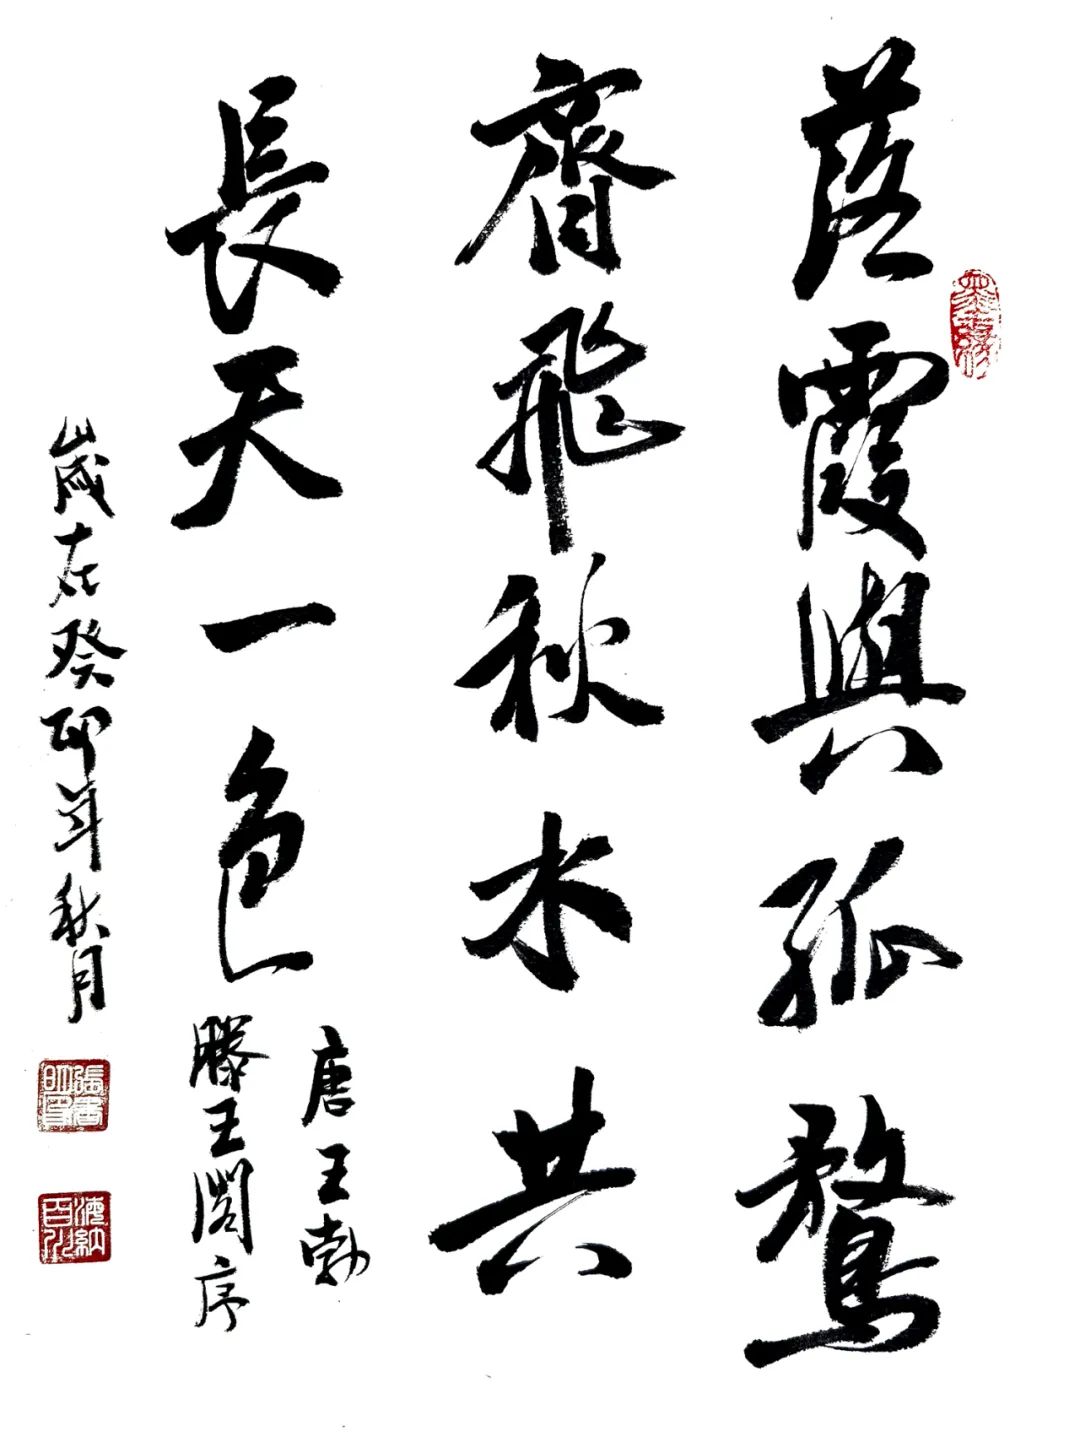 落霞與孤鶩
齊飛秋水共
長天一色
唐王勃
滕王閣序
歲在癸卯年秋月
海納百川